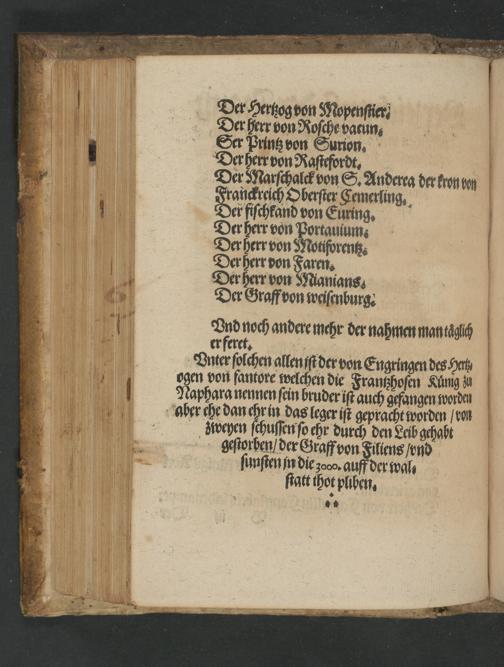 Der Hertzog von Mopenstier.
Der herr von Rosche vacun.
Der Printz von Surion.
Der herr von Rastefordt.
Der Marschalck von S. Anderea der kron von
Franckreich Oberster Cemerling.
Der fischkand von Euring.
Der herr von Portauium.
Der herr von Motiforentz.
Der herr von Faren.
Der herr von Mianians.
Der Graff von weisenburg.
Vnd noch andere mehr der nahmen man täglich
er feret.
Vnter solchen allen ist der von Engringen des Hertz
ogen von fantore welchen die Frantzhosen Künig zu
Naphara nennen sein bruder ist auch gefangen worden
aber ehe dan ehr in das leger ist gepracht worden / von
zweyen schussen so ehr durch den Leib gehabt
gestorben / der Graff von Filiens / vnd
sunsten in die 3000. auff der wal⸗
statt thot pliben.